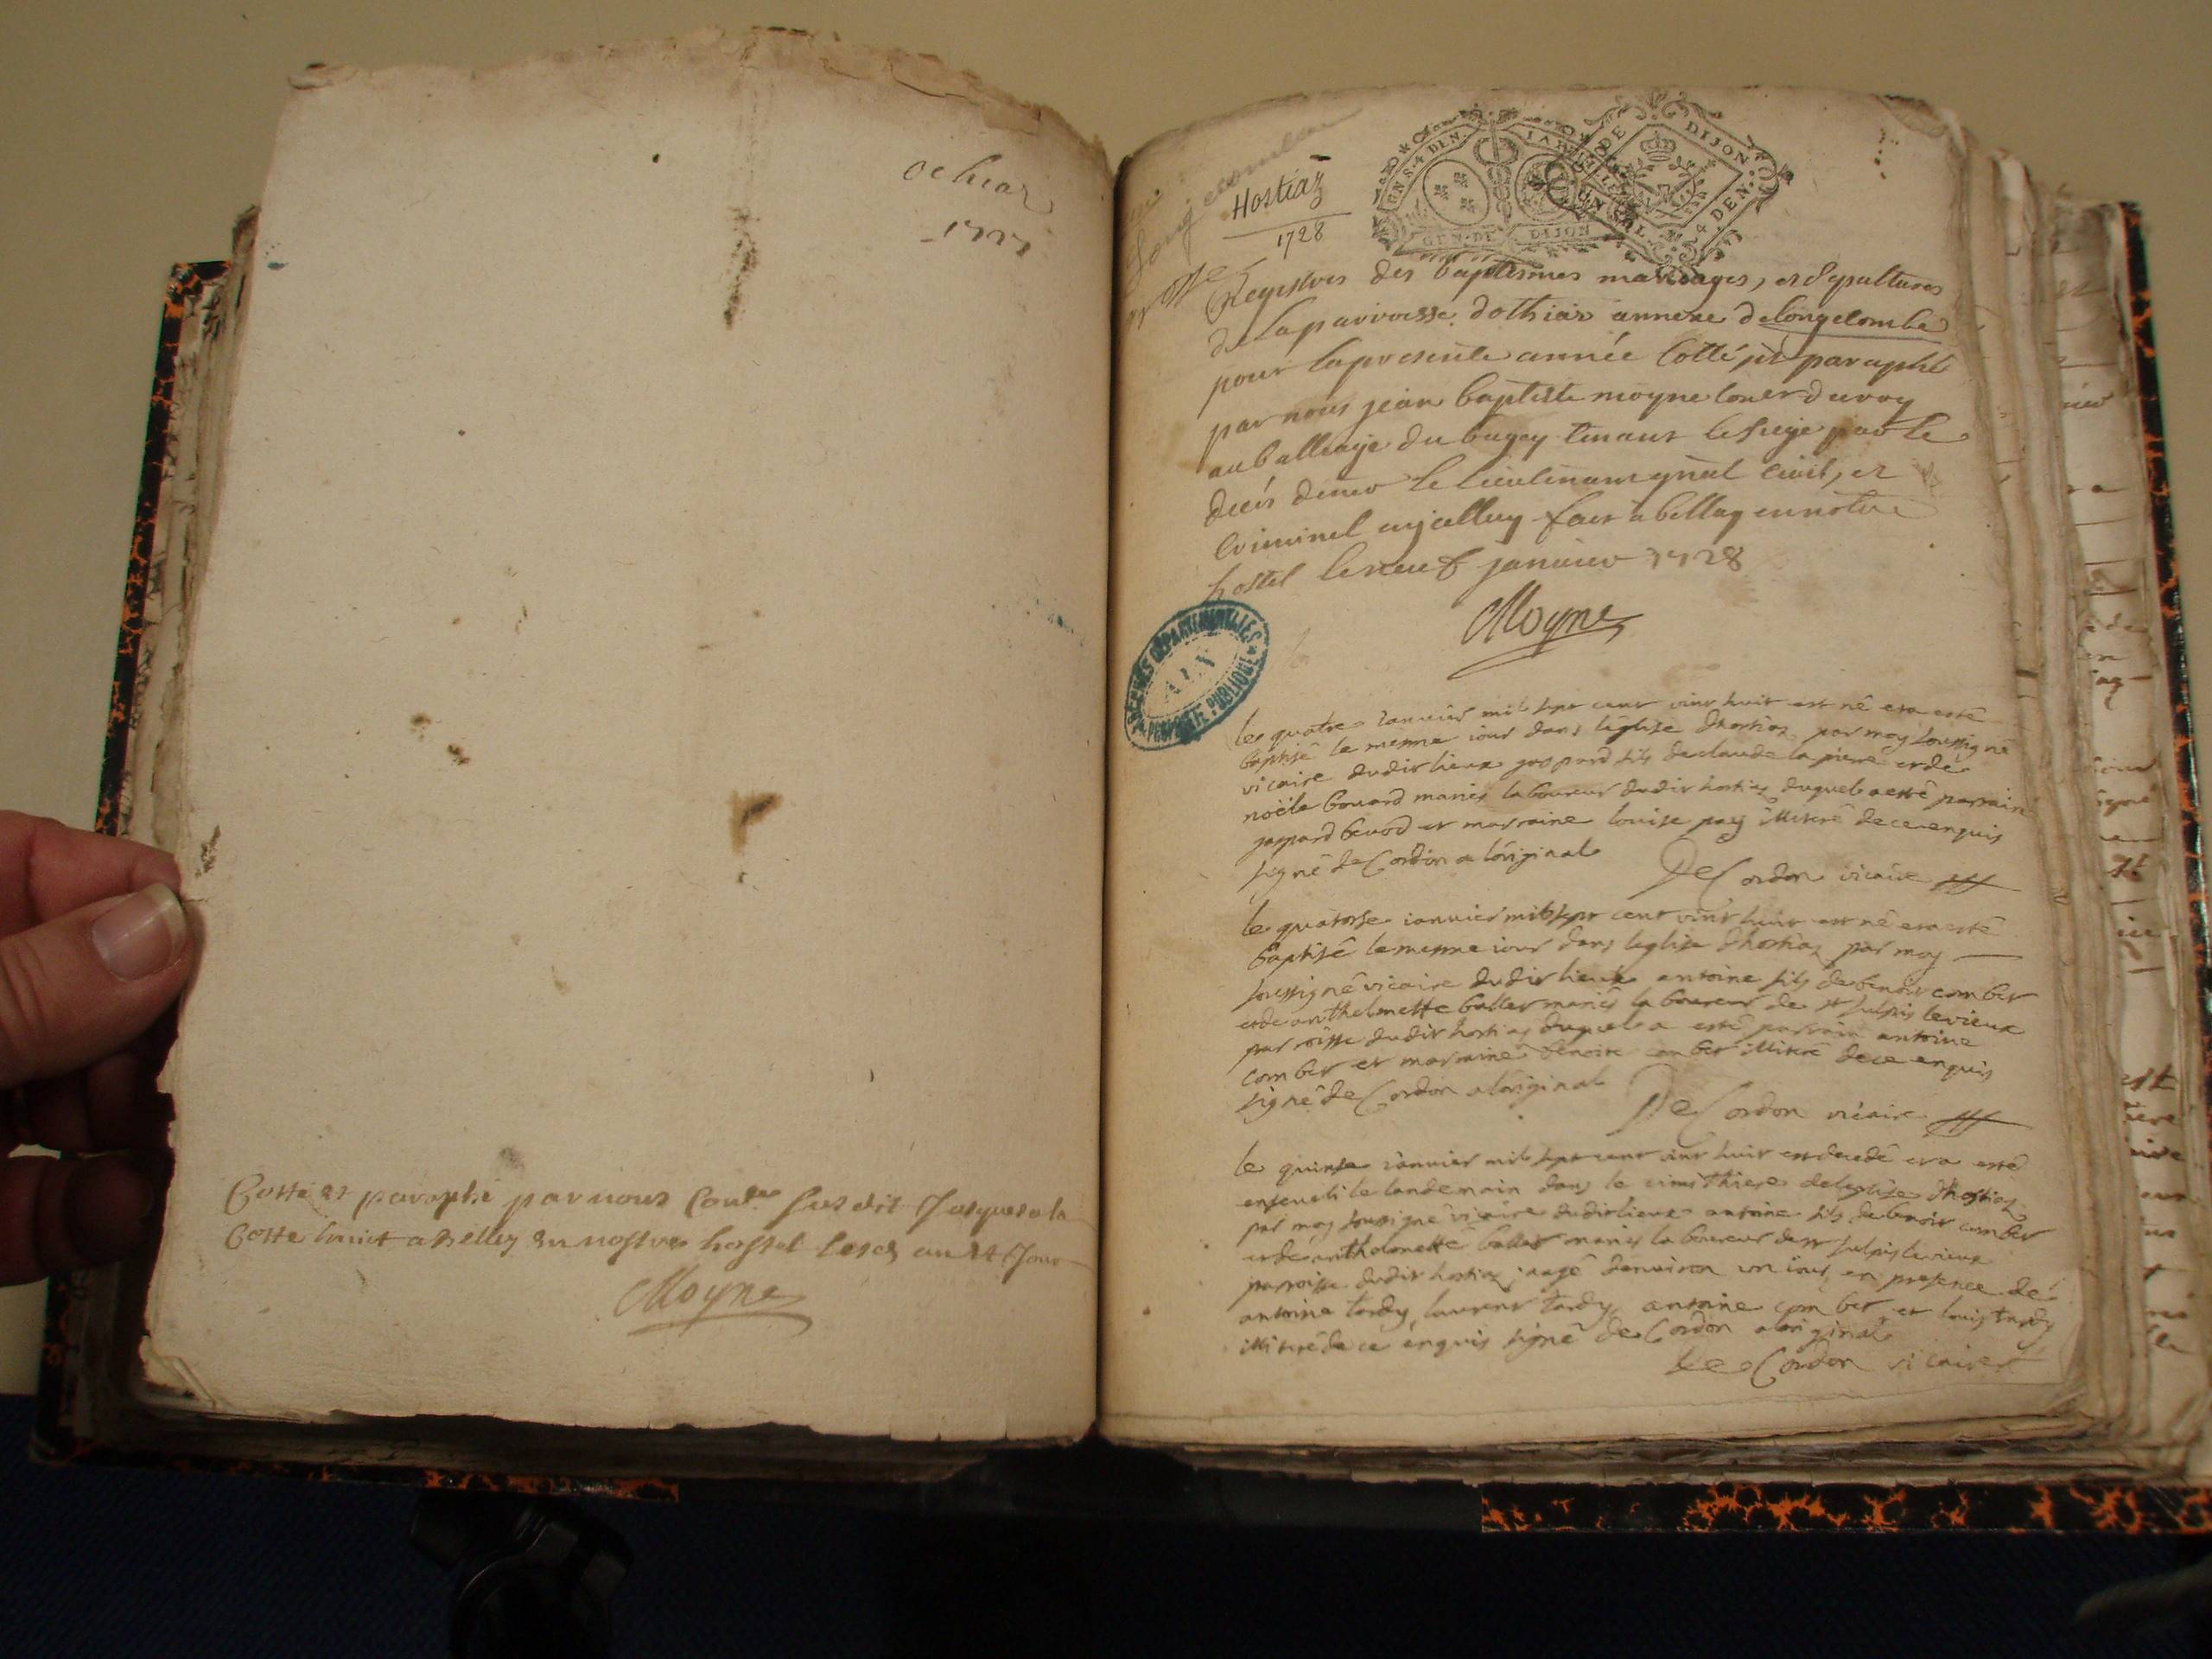 ochiaz
1727
Cotté et paraphé par nous Con.er susdit Jusques a la
Cotte huict a Belley en nostre hostel les an et Jour
Moyne
Longecombe
Hostiaz
1728
EN. S. 4 DEN.
GEN. DE DIJON
DE DIJON
4 DEN.
Registres des baptesmes mariages, et sepultures
de la parroisse dothiaz annexe de longecombe
pour la presente année Cotté et paraphé
par nous jean baptiste moyne Coner du roy
au balliage du bugey tenant le siege par le
deces de mr le lieutenant gnal civil, et
Criminel fait a bellay en notre
hostel le neuf janvier 1728
Moyne
ARCHIVES DEPARTEMENTALES
AIN
PROPRIÉTÉ PUBLIQUE
le quatre ianvier mil sept cent vint huit est né et a esté
baptisé le mesme iour dans léglise dhostiaz par moy soussigné
vicaire dudit lieux gaspard fils de claude la piere et de
noële bouard mariés laboureur dudit hostiaz duquel a esté parrain
gaspard bevod et marraine louise pay illiteré de ce enquis
signé De Cordon a lóriginal
De Cordon vicaire
le quatorse ianvier mil sept cent vint huit est né et a esté
baptisé le mesme iour dans leglise dhostiaz par moy
soussigné vicaire dudit lieux antoine fils de benoit combet
et de anthelmette ballet mariés laboureur de st sulpis le vieux
parroisse dudit hostiaz duquel a esté parrain antoine
combet et marraine benoite combet illiteré de ce enquis
signé De Cordon a lóriginal
De Cordon vicaire
le quinse ianvier mil sept cent vint huit est decedé et a esté
enseveli le landemain dans le cimithiere de leglise dhostiaz
par moy soussigné vicaire dudit lieux antoine fils de benoit combet
et de anthelmette ballet mariés laboureur de st sulpis le vieux
parroisse dudit hostiaz, aagé denviron un iour, en presence de
antoine tardy, laurent tardy, antoine combet et louis tardy
illiteré de ce enquis signé De Cordon a loriginal
De Cordon vicaire